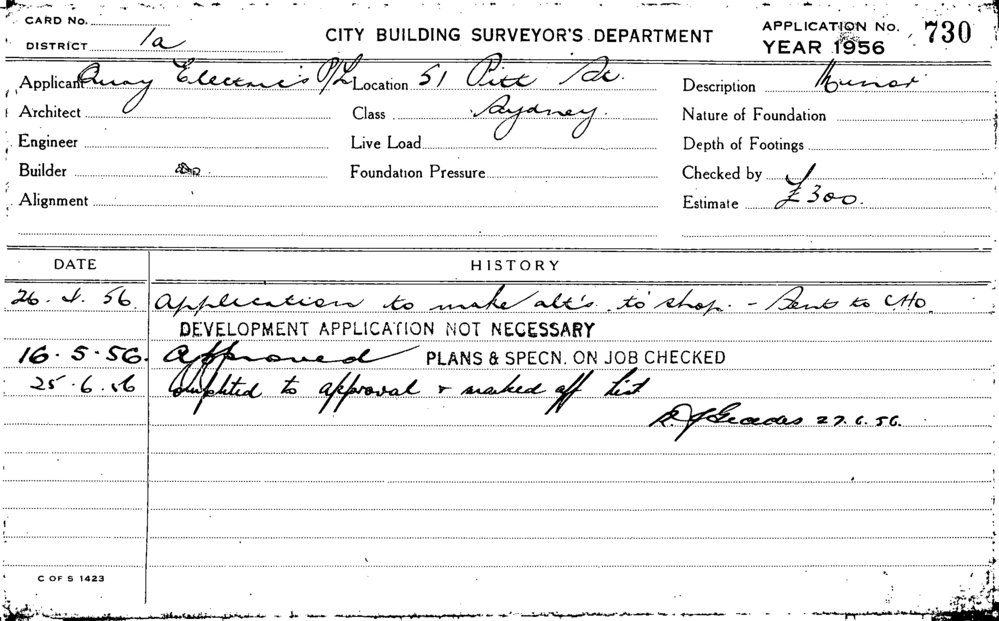 CARD No.
DISTRICT 1a
CITY BUILDING SURVEYOR'S DEPARTMENT
APPLICATION No. 730
YEAR 1956
Applicant Quay Electrics P/L Location 51 Pitt St. Description Minor
Architect Class Sydney. Nature of Foundation
Engineer Live Load Depth of Footings
Builder do Foundation Pressure Checked by
Alignment Estimate £300.
DATE HISTORY
26. 4. 56. Application to make alt's. to shop. - Sent to C.H.O.
DEVELOPMENT APPLICATION NOT NECESSARY
16. 5. 56. Approved PLANS & SPECN. ON JOB CHECKED
25. 6. 56 Completed to approval & marked off list
27. 6. 56.
C OF S 1423